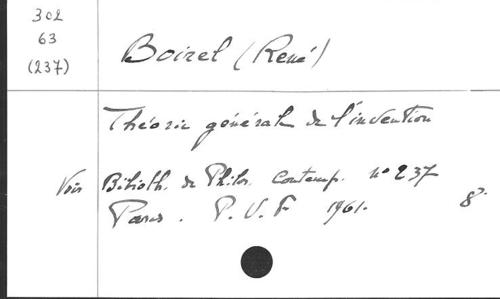 302
63
(237)
Boirel (René)
Théorie générale de l'invention
Voir Biblioth. de Philos. Contemp. n° 237
Paris. P.U.F 1961. 8°.